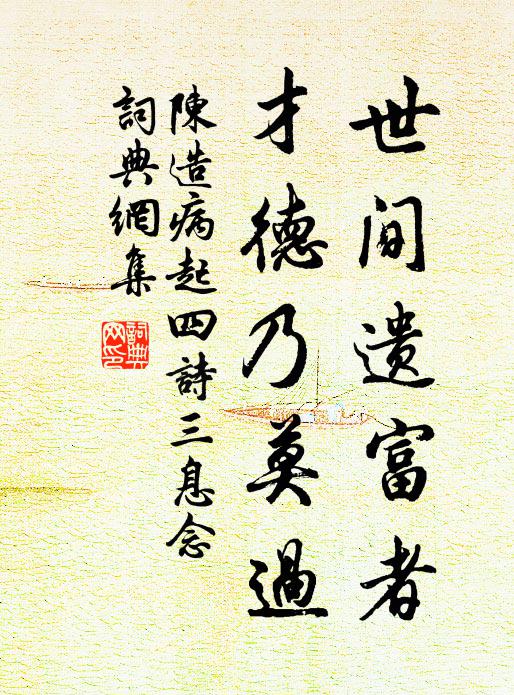 世間遺富者
才德乃莫過
陳造病起四詩三息念
詞典網集
詞典网印